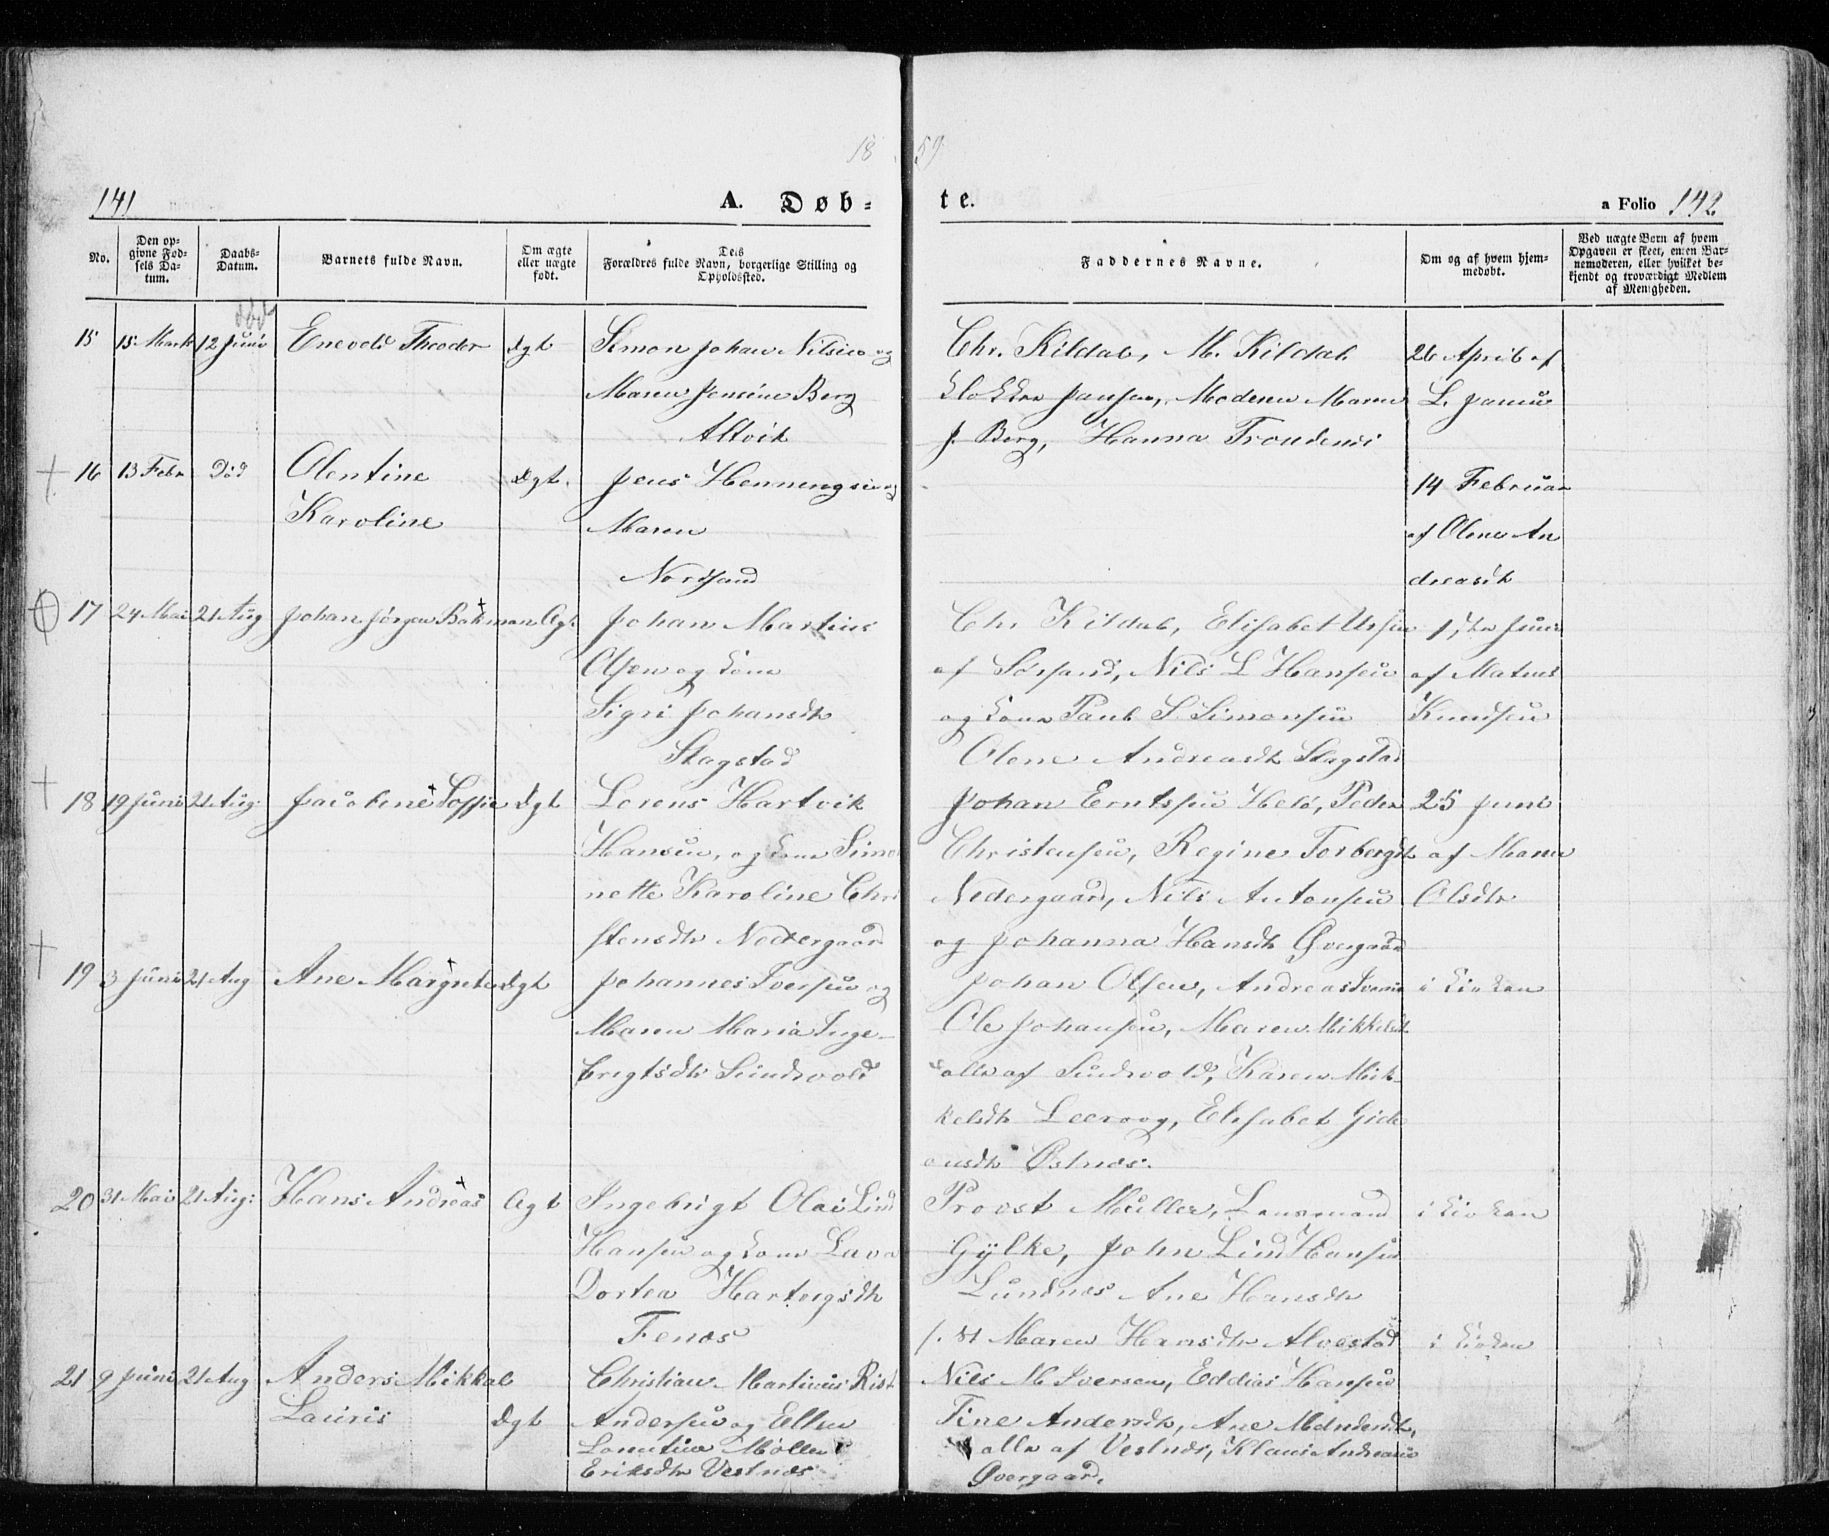 18 59
141
A. Døb-
te.
a Folio 142
No.
Den op-
givne Fød-
sels Da-
tum.
Daabs-
Datum.
Barnets fulde Navn.
Om ægte
eller uægte
født.
Deis
Forældres fulde Navn, borgerlige Stilling og
Opholdssted.
Faddernes Navne.
Om og af hvem hjem-
medøbt.
Ved uægte Børn af hvem
Opgaven er skeet, enten Bar-
nemoderen, eller hvilket be-
kjendt og troværdigt Medlem
af Menigheden.
15 15 Mark 12 Juni Enevold Theodor Ægt Simon Johan Nilsen og
Maren Jensine Berg
Altvik
Chr. Kildal, M. Kildal
Klokker Jansen, Moderen Maren
J. Berg, Hanna
26 April af
L.
16 13 Febr Død Olentine Ægt. Jens Henningsen og
Karoline Maren
Nordsand
14 Februar
af Olene An
dreasdt
17 24 Mai 21 Aug Johan Jørgen Bakman Ægt Johan Martius
Olsen og Kone
Sigri Johansdtr
Stagstad
Chr. Kildal, Elisabet
af Sørsand, Nils L Hansen
og Kone Paul S. Simonsen
Olene Andreasdt Stagstad
1ste Juni
af Mateus
Knudsen
18 19 Juni 21 Aug. Jacobine Soffie Ægt Lorens Hartvik
Hansen, og Kone Simo
nette Karoline Chri
stensdtr Nedergaard
Johan Erntsen Helø, Peder
Christensen, Regine Torbergdt
Nedergaard, Nils Antonsen
og Johanna Hansdt Øvergaard
25 Juni
af Maren
Olsdtr
19 3 Juni 21 Aug Ane Margrete Ægt Johannes Iversen og
Maren Maria Inge-
brigtsdtr Sundsvold
Johan Olsen, Andreas Iversen
Ole Johansen, Maren Mikkelsdt
alle af Sundsvold, Karen Mik-
kelsdtr Leervog, Elisabet Gide
onsdtr Østnes.
i Kirken
20 31 Mai 21 Aug: Hans Andreas Ægt Ingebrigt Olai Lind
Hansen og Kone Lava
Dortea Hartvigsdtr
Fenes
Provst Müller, Lensmand
Gylke, John Lind Hansen
Lundnes Ane Hansdtr
i Kirken
21 9 Juni 21 Aug Anders Mikkal
Lauris Ægt Christian Martinus Rist
Andersen og Ellen
Lorentine Møller
Eriksdtr Vestnes
Maren Hansdtr Alvestad
Nils M Iversen, Eddias Hansen
Tine Andersdtr, Ane
alle af Vestnes, Klaus Andreasen
Øvergaard,
i Kirken